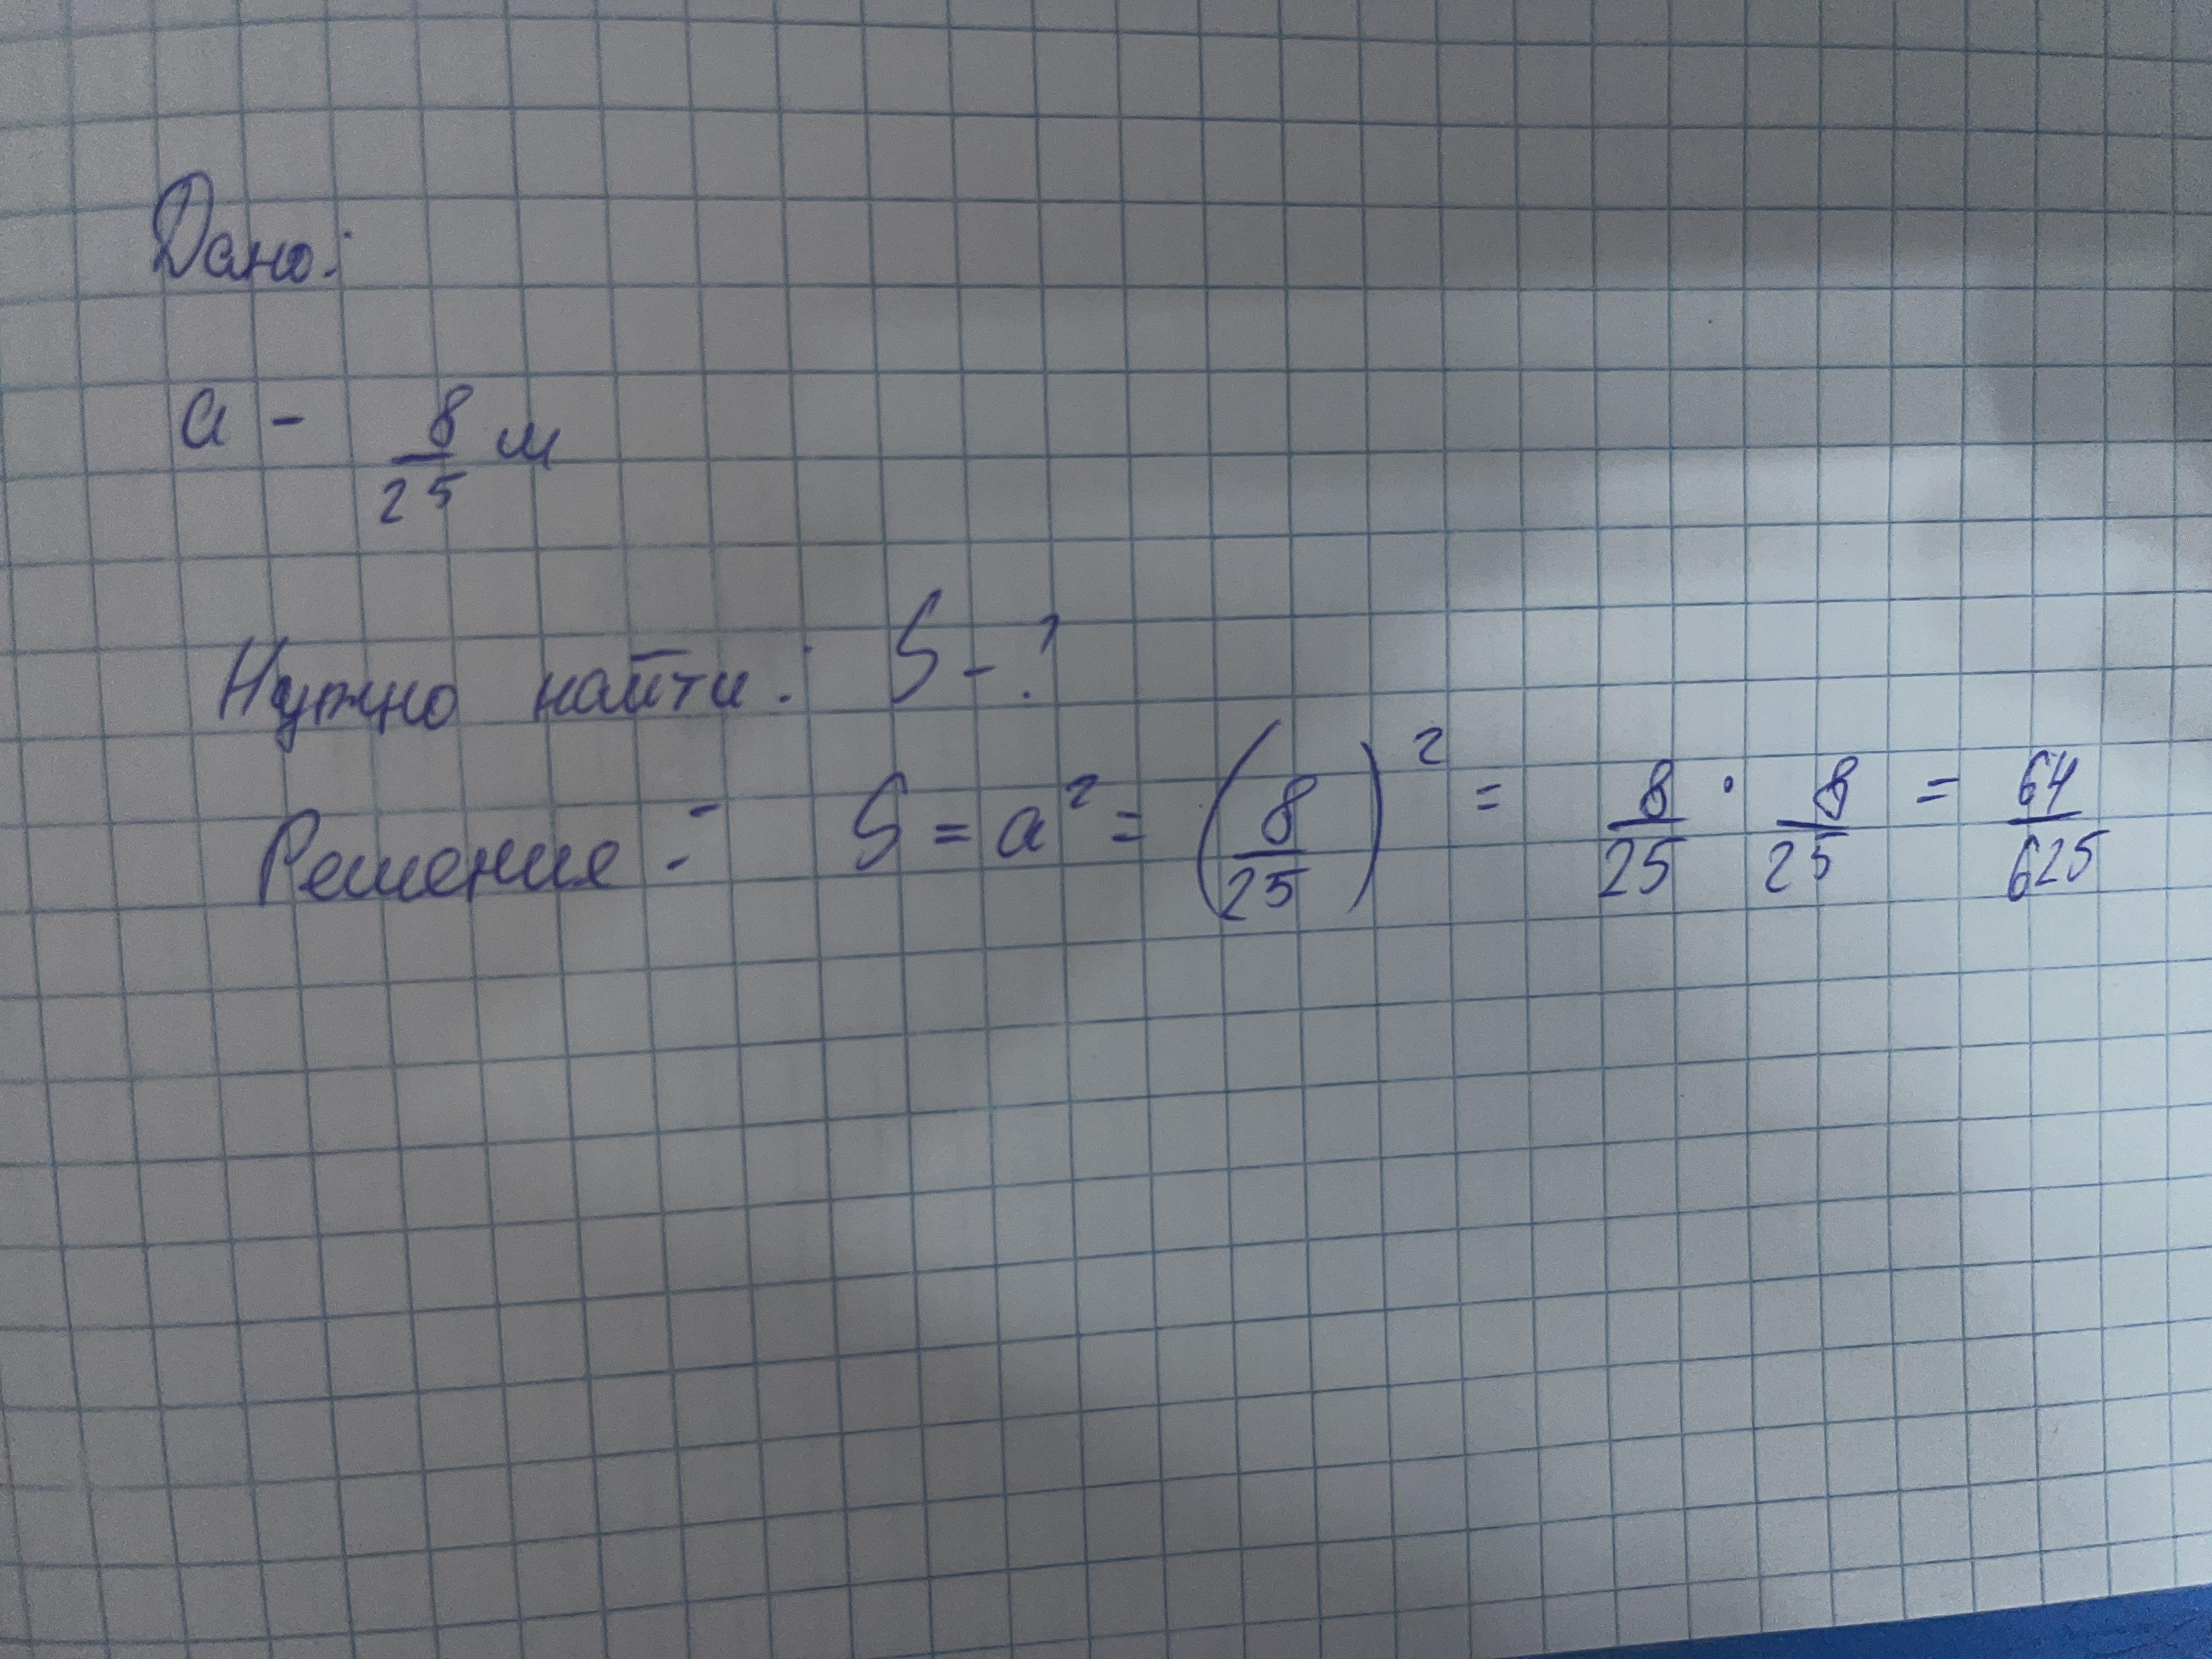 Дано:
a - 8/25 м
Нужно найти: S - ?
Решение: S = a² = (8/25)² = 8/25 · 8/25 = 64/625